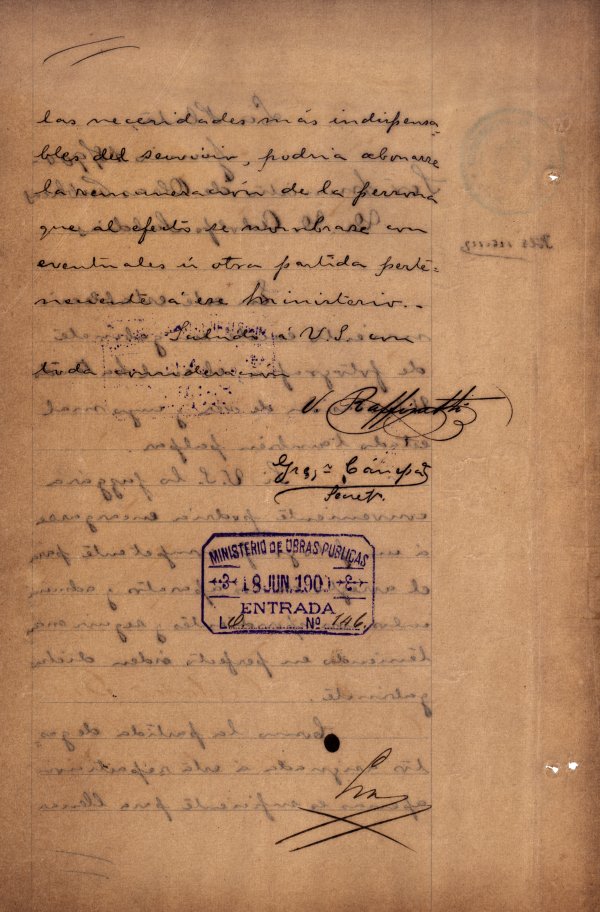 las necesidades más indispensa-
bles del servicio, podria abonarse
la remuneración de la persona
que al efecto se nombrase con
eventuales ú otra partida perte-
neciente á ese Ministerio..
Saludo á V.S. con
toda consideración
V. Raffinetti
Secret.
MINISTERIO DE OBRAS PUBLICAS
3 18 JUN. 1900 2
ENTRADA
L O. Nº 146.